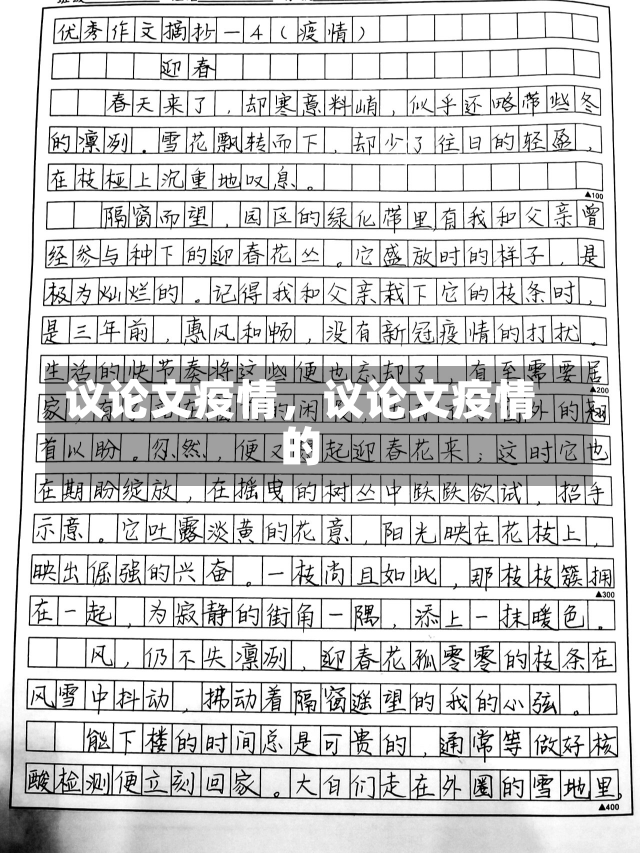 优秀作文摘抄—4(疫情)
迎春
春天来了,却寒意料峭,似乎还略带些冬
的凛冽。雪花飘转而下,却少了往日的轻盈,
在枝桠上沉重地叹息。
▲100
隔窗而望,园区的绿化带里有我和父亲曾
经参与种下的迎春花丛。它盛放时的样子,是
极为灿烂的。记得我和父亲栽下它的枝条时,
是三年前,惠风和畅,没有新冠疫情的打扰。
生活的快节奏将这些便也忘却了,有至需要居
▲200
家,外的翘
议论文疫情,议论文疫情
的
首以盼。忽然,便又起迎春花来;这时它也
在期盼绽放,在摇曳的树丛中跃跃欲试,招手
示意。它吐露淡黄的花意,阳光映在花枝上,
映出倔强的兴奋。一枝尚且如此,那枝枝簇拥
▲300
在一起,为寂静的街角一隅,添上一抹暖色。
风,仍不失凛冽,迎春花孤零零的枝条在
风雪中抖动,拂动着隔窗遥望的我的心弦。
能下楼的时间总是可贵的,通常等做好核
酸检测便立刻回家。大白们走在外圈的雪地里,
▲400